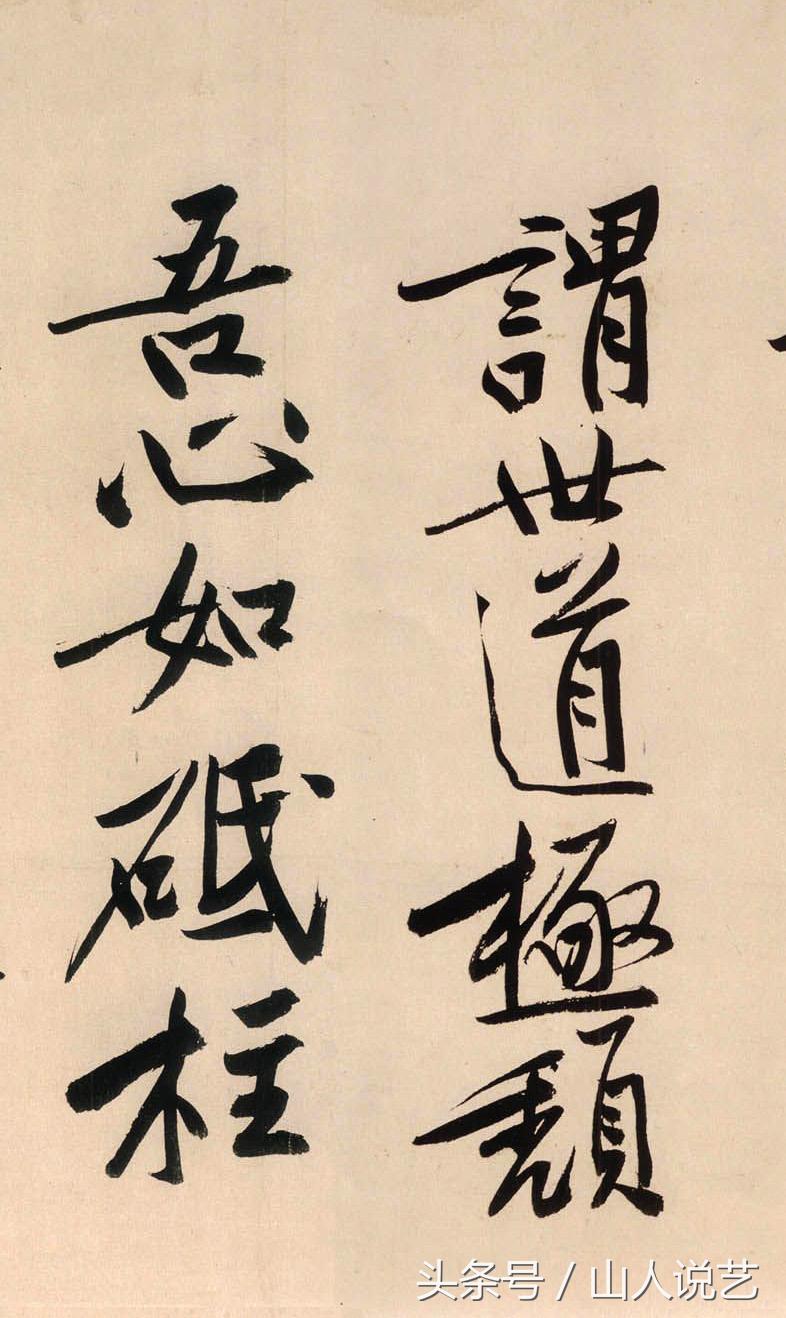 謂世道極頹
吾心如砥柱
头条号 / 山人说艺